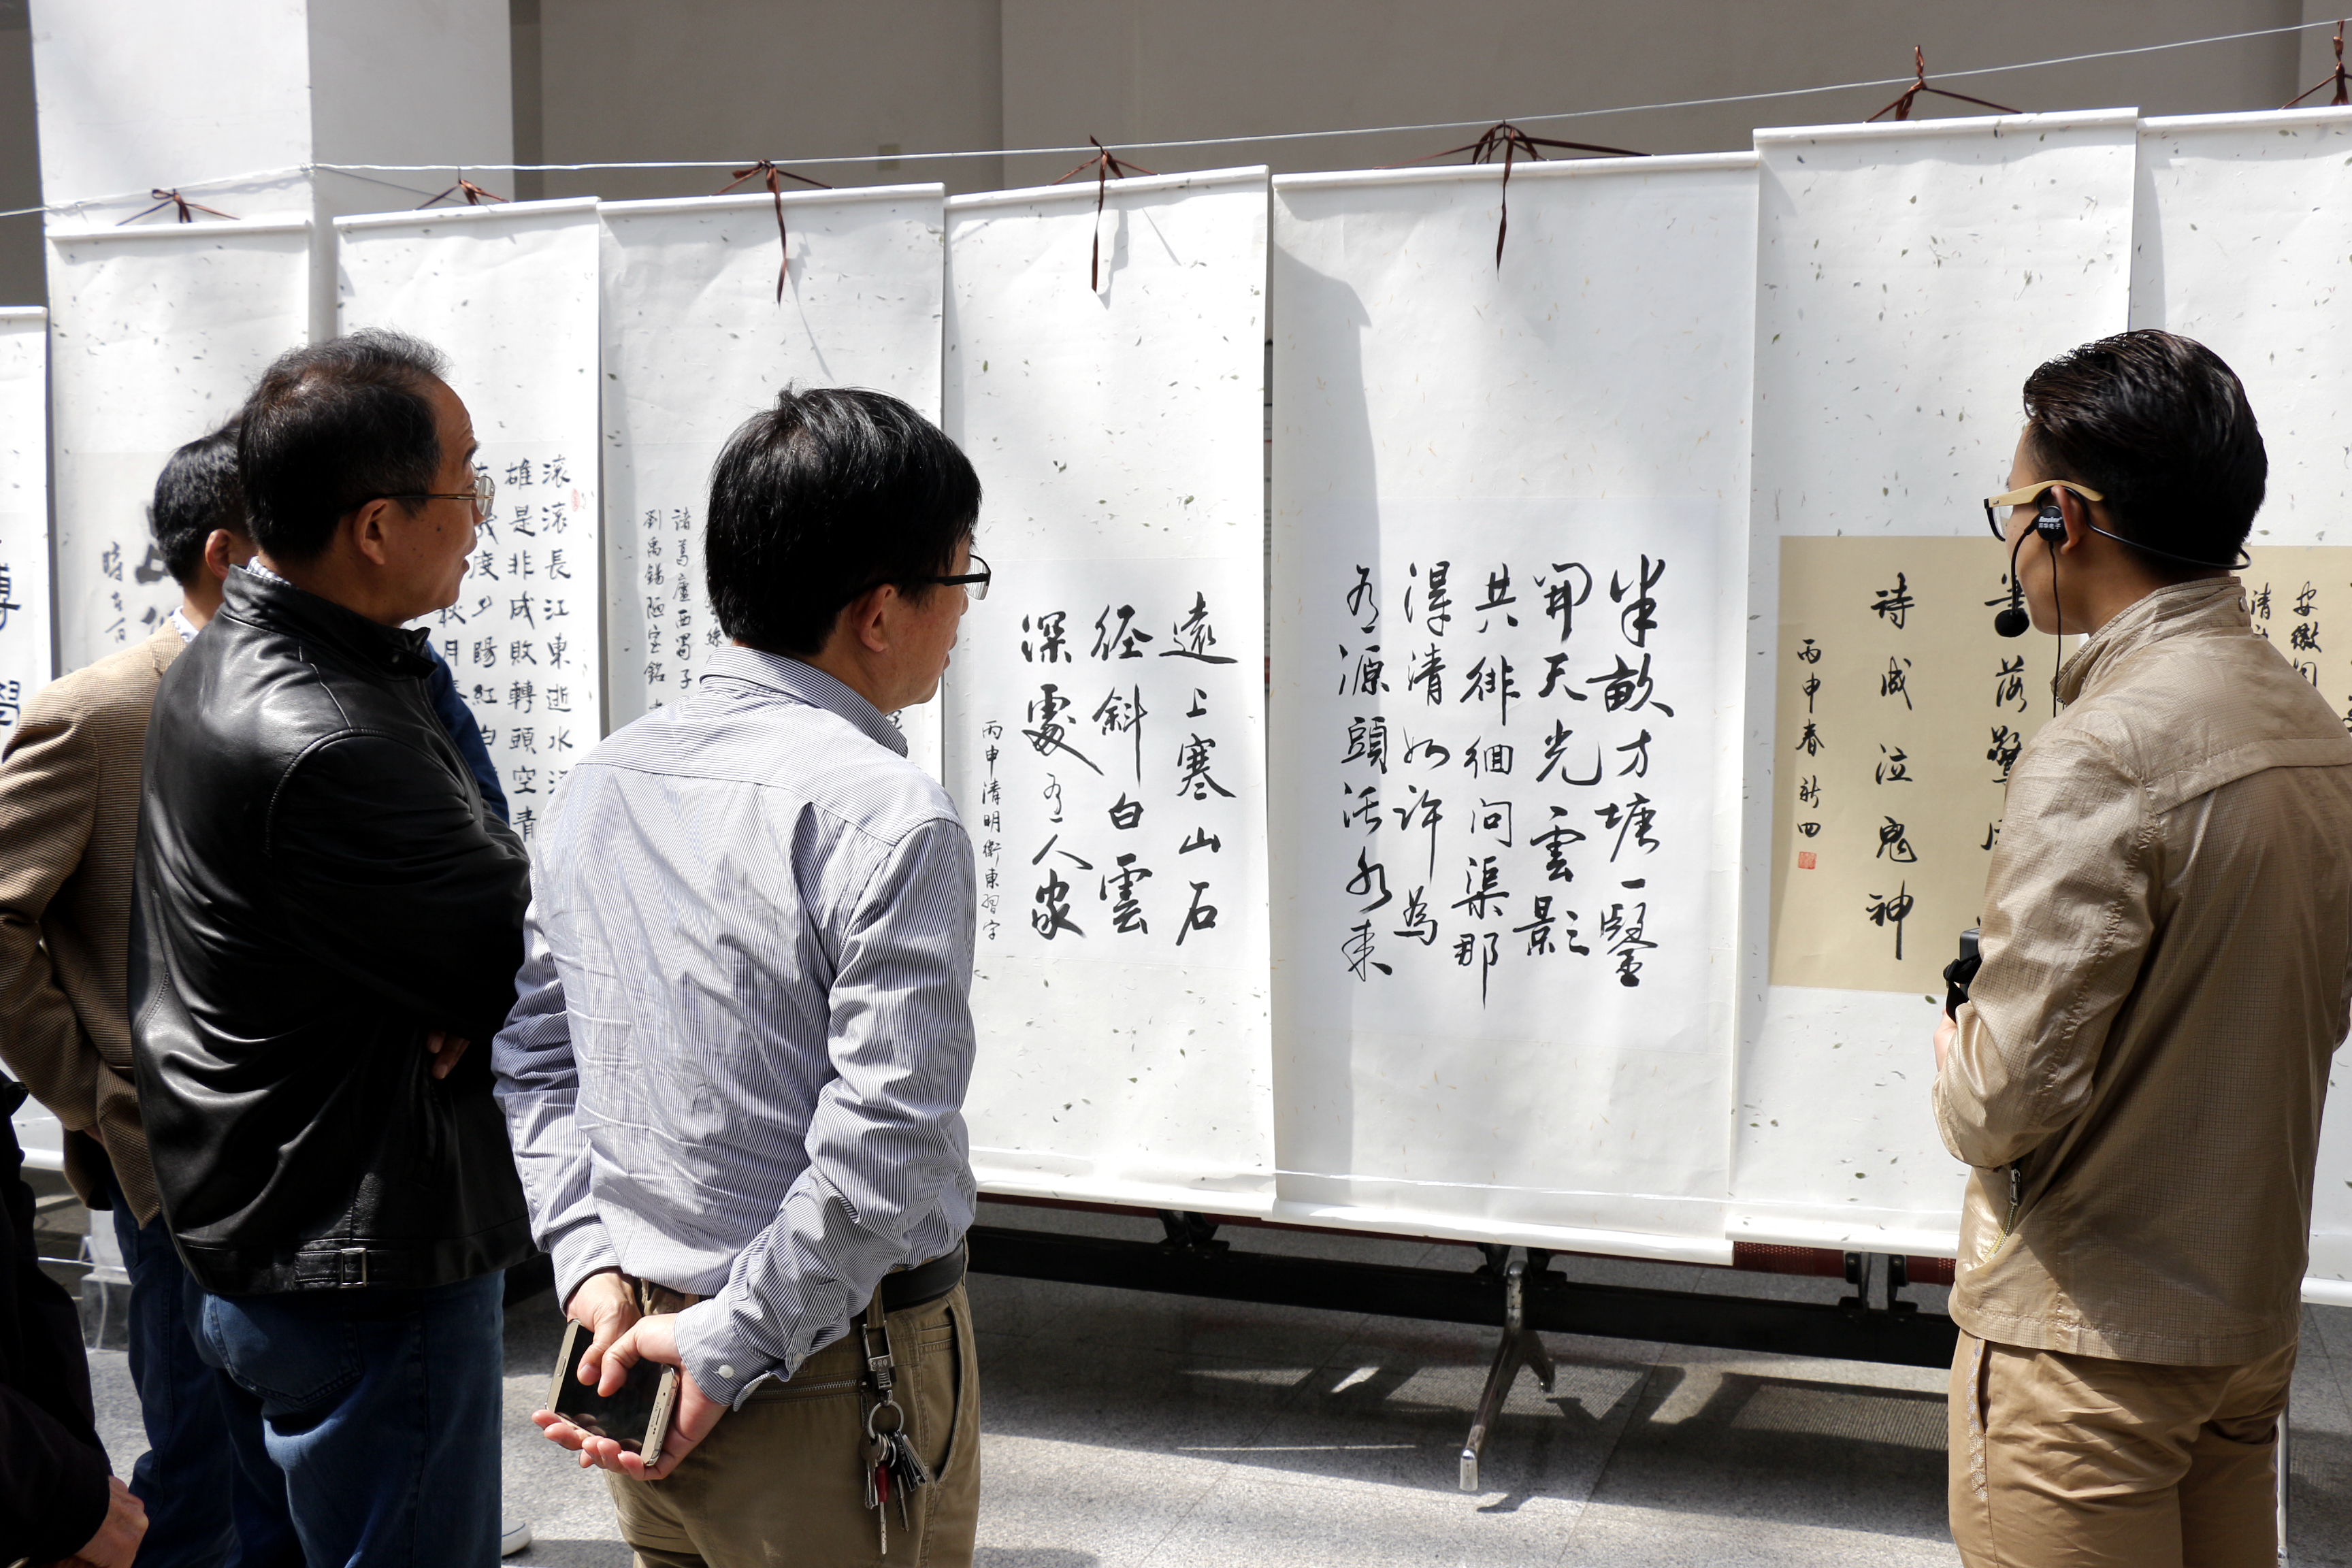 安徽
清
落驚
詩成泣鬼神
丙申春新四
半畝方塘一鑒
開天光雲影
共徘徊問渠那
得清如許為
有源頭活水來
遠上寒山石
径斜白雲
深處有人家
丙申清明衛東習字
諸葛廬西蜀子
劉禹錫陋室銘
滚滚長江東逝水
雄是非成敗轉頭空青
度夕陽紅白
秋月春